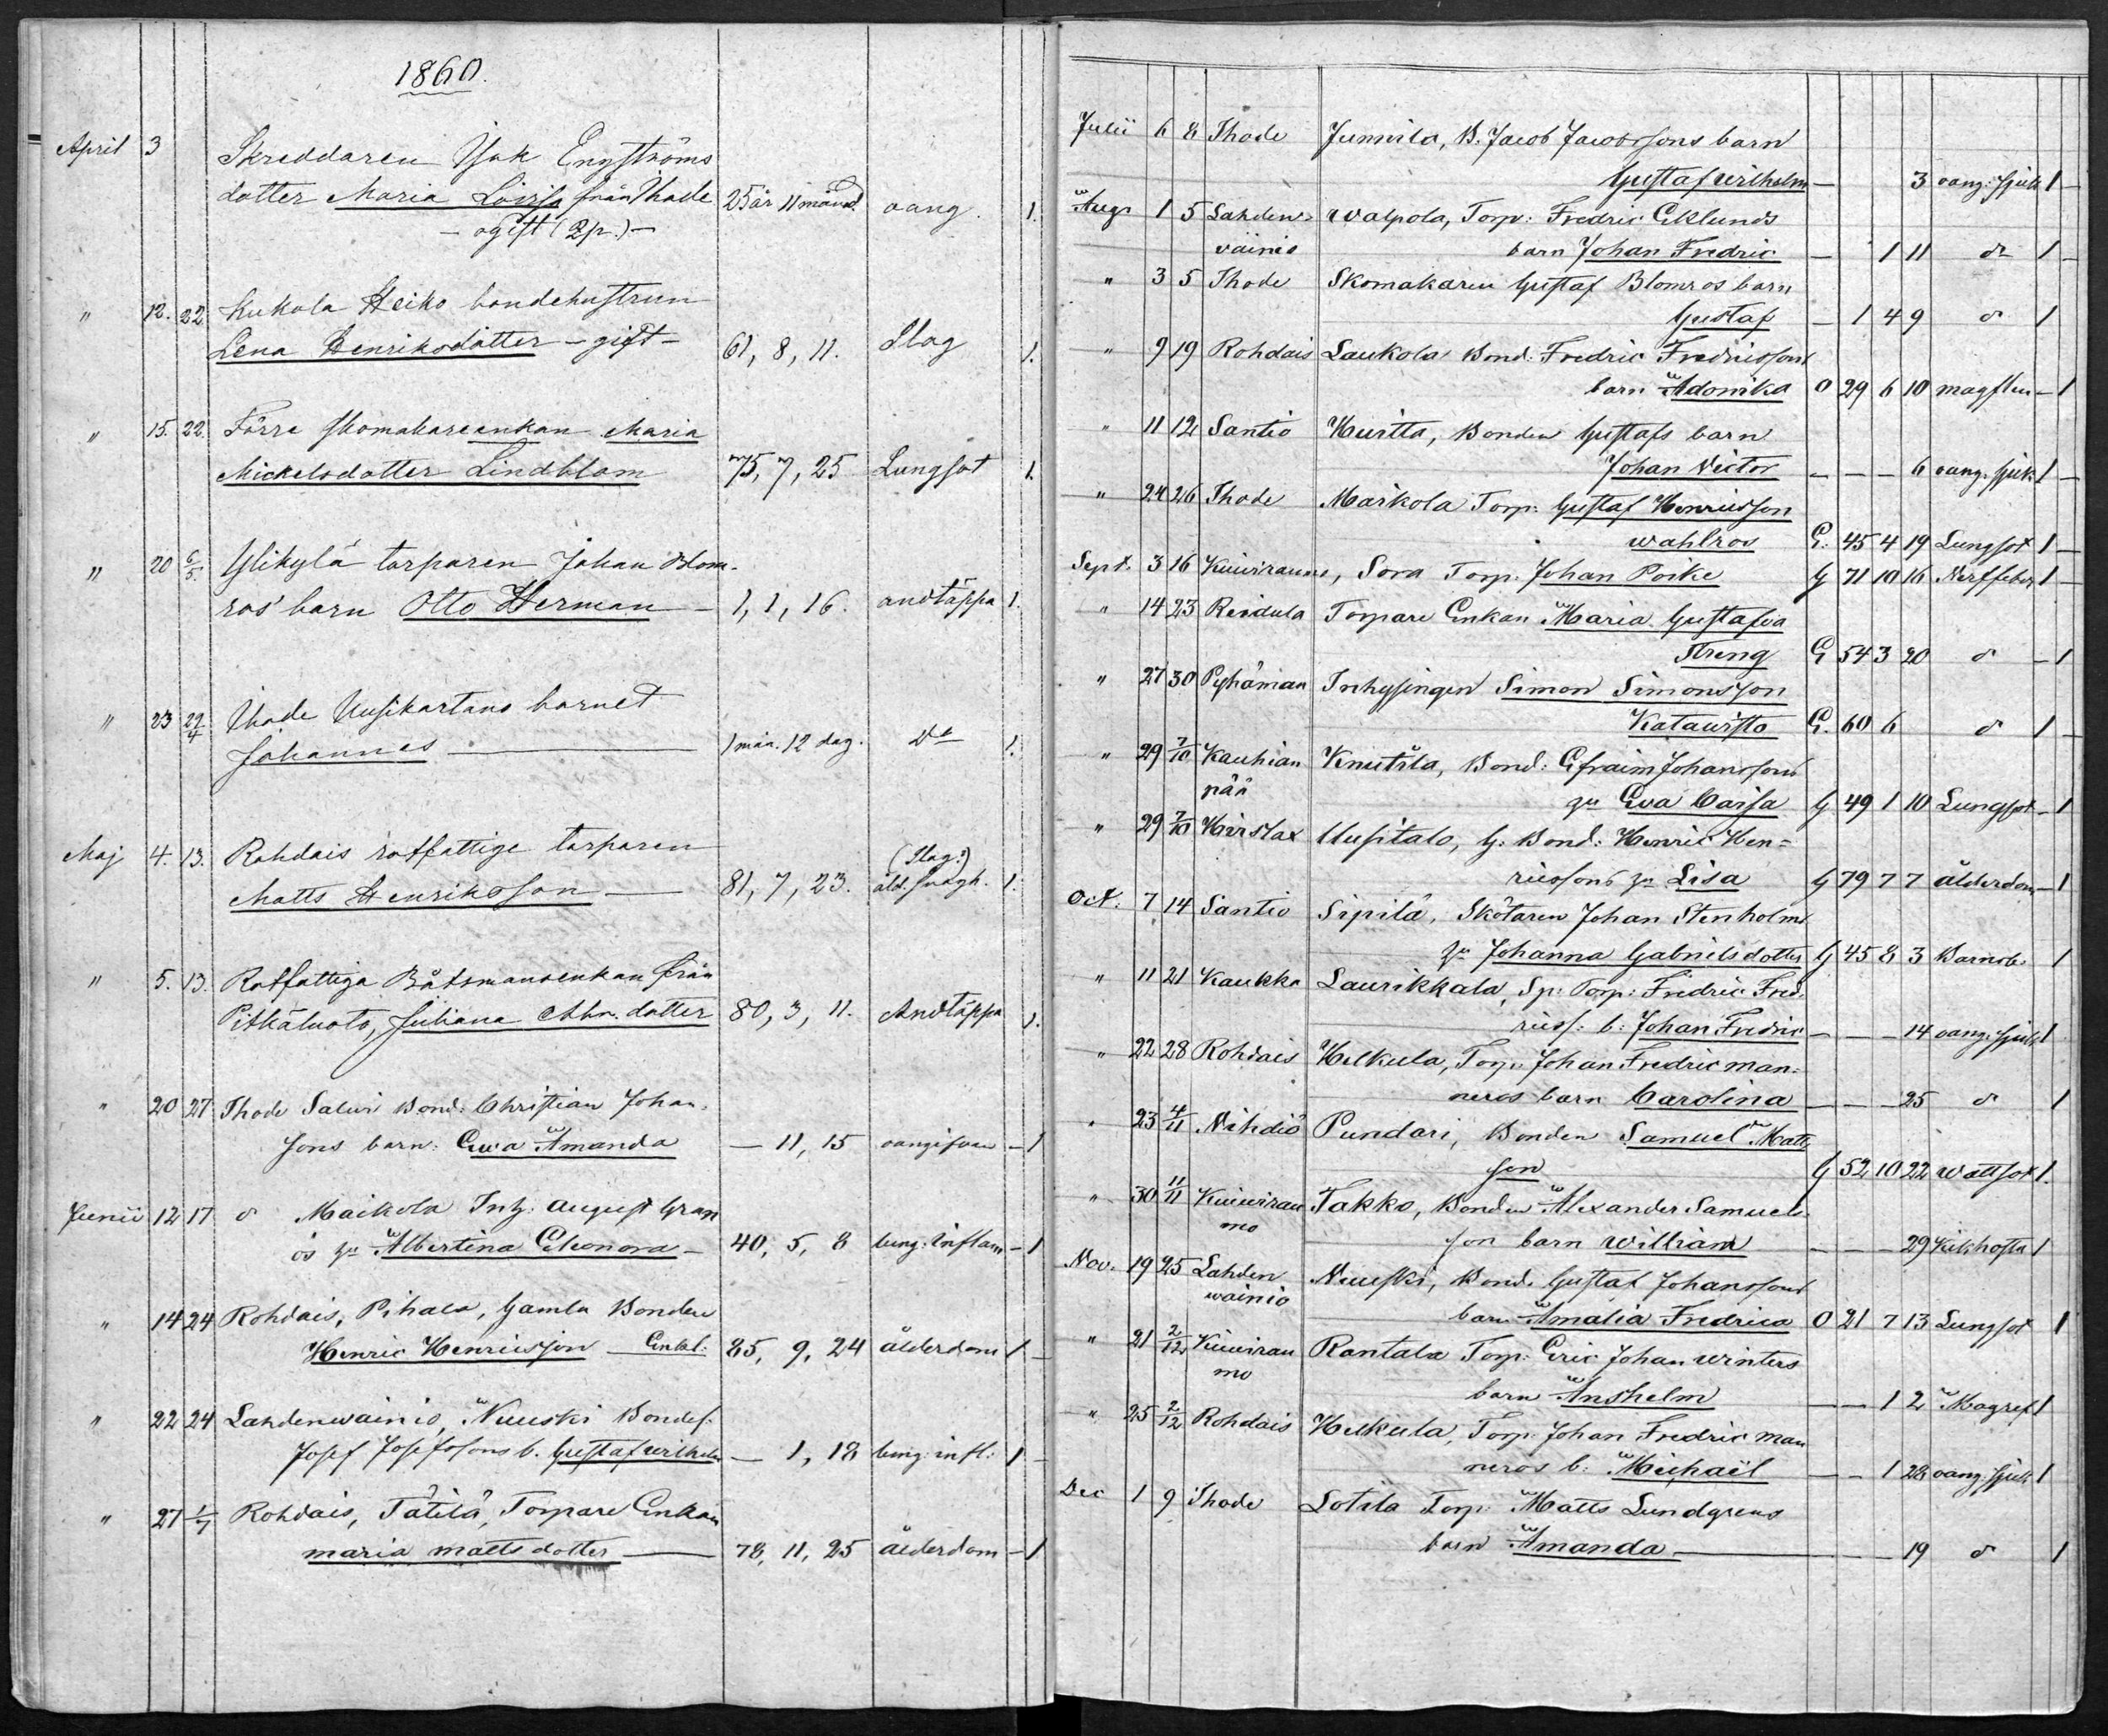 1860.
April 3 Skreddaren Isak Engströms
dotter Maria Lovisa från Ihode 25 år 11 månd. oang. 1.
— ogift (2 p.) —
" 12. 22 Kukola Heiko bondehustrun
Lena Henriksdotter — gift — 61, 8, 11. Slag 1.
" 15. 22. Förre skomakareenkan Maria
Mickelsdotter Lindblom 75, 7, 25 Lungsot 1.
" 20 6/5 Ylikylä torparen Johan Blom-
ros' barn Otto Herman — 1, 1, 16. andtäppa 1.
" 23 29/4 Ihode Uusikartano barnet
Johannes — 1 mån. 12 dag. Do 1.
Maj 4. 13. Rohdais rotfattige torparen (Slag?)
Matts Henriksson — 81, 7, 23. åld. svagh. 1.
" 5. 13. Rotfattiga Båtsmansenkan från
Pitkäluoto, Juliana Abr. dotter 80, 3, 11. Andtäppa 1.
" 20 27 Ihode Salwi Bond: Christian Johan-
sons barn: Ewa Amanda — 11, 15 oangifven — 1
Junii 12 17 d Maikola Inh: August Gran
ös hu Albertina Eleonora — 40, 5, 8 lung: inflam — 1
" 14 24 Rohdais, Pihala, Gamla Bonden
Henric Henricsson Enkl: 85, 9, 24 ålderdom 1 —
" 22 24 Lahdenwainio, Nuuski Bondes.
Josef Josefssons b. Gustaf Wilhelm — 1, 18 lung: infl: 1 —
" 27 1/7 Rohdais, Tätilä, Torpare Enkan
Maria Mattsdotter — 78, 11, 25 ålderdom — 1
Julii 6 8 Ihode Junnila, B. Jacob Jacobssons barn
Gustaf Wilhelm — 3 oang: sjuk 1 —
Aug. 1 5 Lahden- Walpola, Torp: Fredric Eklunds
väinio barn Johan Fredric — 1 11 do 1 —
" 3 5 Ihode Skomakaren Gustaf Blomros barn
Gustaf — 1 4 9 d 1
" 9 19 Rohdais Laukola Bond: Fredric Fredricssons
barn Adomika O 29 6 10 magflen — 1
" 11 12 Santio Heuritta, Bonden Gustafs barn
Johan Victor — — — 6 oang. sjuk 1 —
" 24 26 Ihode Maikola Torp: Gustaf Henricsson
Wahlros G. 45 4 19 Lungsot 1 —
Sept. 3 16 Kuivirauma, Sora Torp. Johan Poike G 71 10 16 Nerffeber 1 —
" 14 23 Reidula Torpare Enkan Maria Gustafva
Streng G 54 3 20 d — 1
" 27 30 Pyhämaa Inhysingen Simon Simonsson
Katawisto G. 60 6 d 1 —
" 29 7/10 Kauhian Knutila, Bond: Efraim Johanssons
pää hu Eva Caisa G 49 1 10 Lungsot — 1
" 29 7/10 Hirslax Uusitalo, G: Bond: Henric Hen-
ricssons hu Lisa G 79 7 7 ålderdom — 1
Oct. 7 14 Santio Sipilä, Skötaren Johan Stenholms
hu Johanna Gabrielsdotter G 45 8 3 Barnsb. 1
" 11 21 Kaukka Laurikkala, Sp: Torp: Fredric Fred-
ricss: b: Johan Fredric — — — 14 oang: sjuk 1
" 22 28 Rohdais Helkula, Torp: Johan Fredric Man-
neros barn Carolina — — — 25 d 1
" 23 4/11 Nihdiö Pundari, Bonden Samuel Matts
son G 52 10 22 Wattsot 1.
" 30 11/11 Kuivirau Takko, Bonden Alexander Samuels-
mo son barn William — — — 29 Kikhosta 1
Nov. 19 25 Lahden Nuuski, Bond. Gustaf Johanssons
wainio barn Amalia Fredrica O 21 7 13 Lungsot 1
" 21 2/12 Kuivirau Rantala Torp: Eric Johan Winters
mo barn Anshelm — — 1 2 Magref 1
" 25 2/12 Rohdais Helkula, Torp: Johan Fredric Man
neros b: Michaël — — 1 28 oang: sjuk 1
Dec 1 9 Ihode Lotila Torp: Matts Lundgrens
barn Amanda — — — 19 d 1